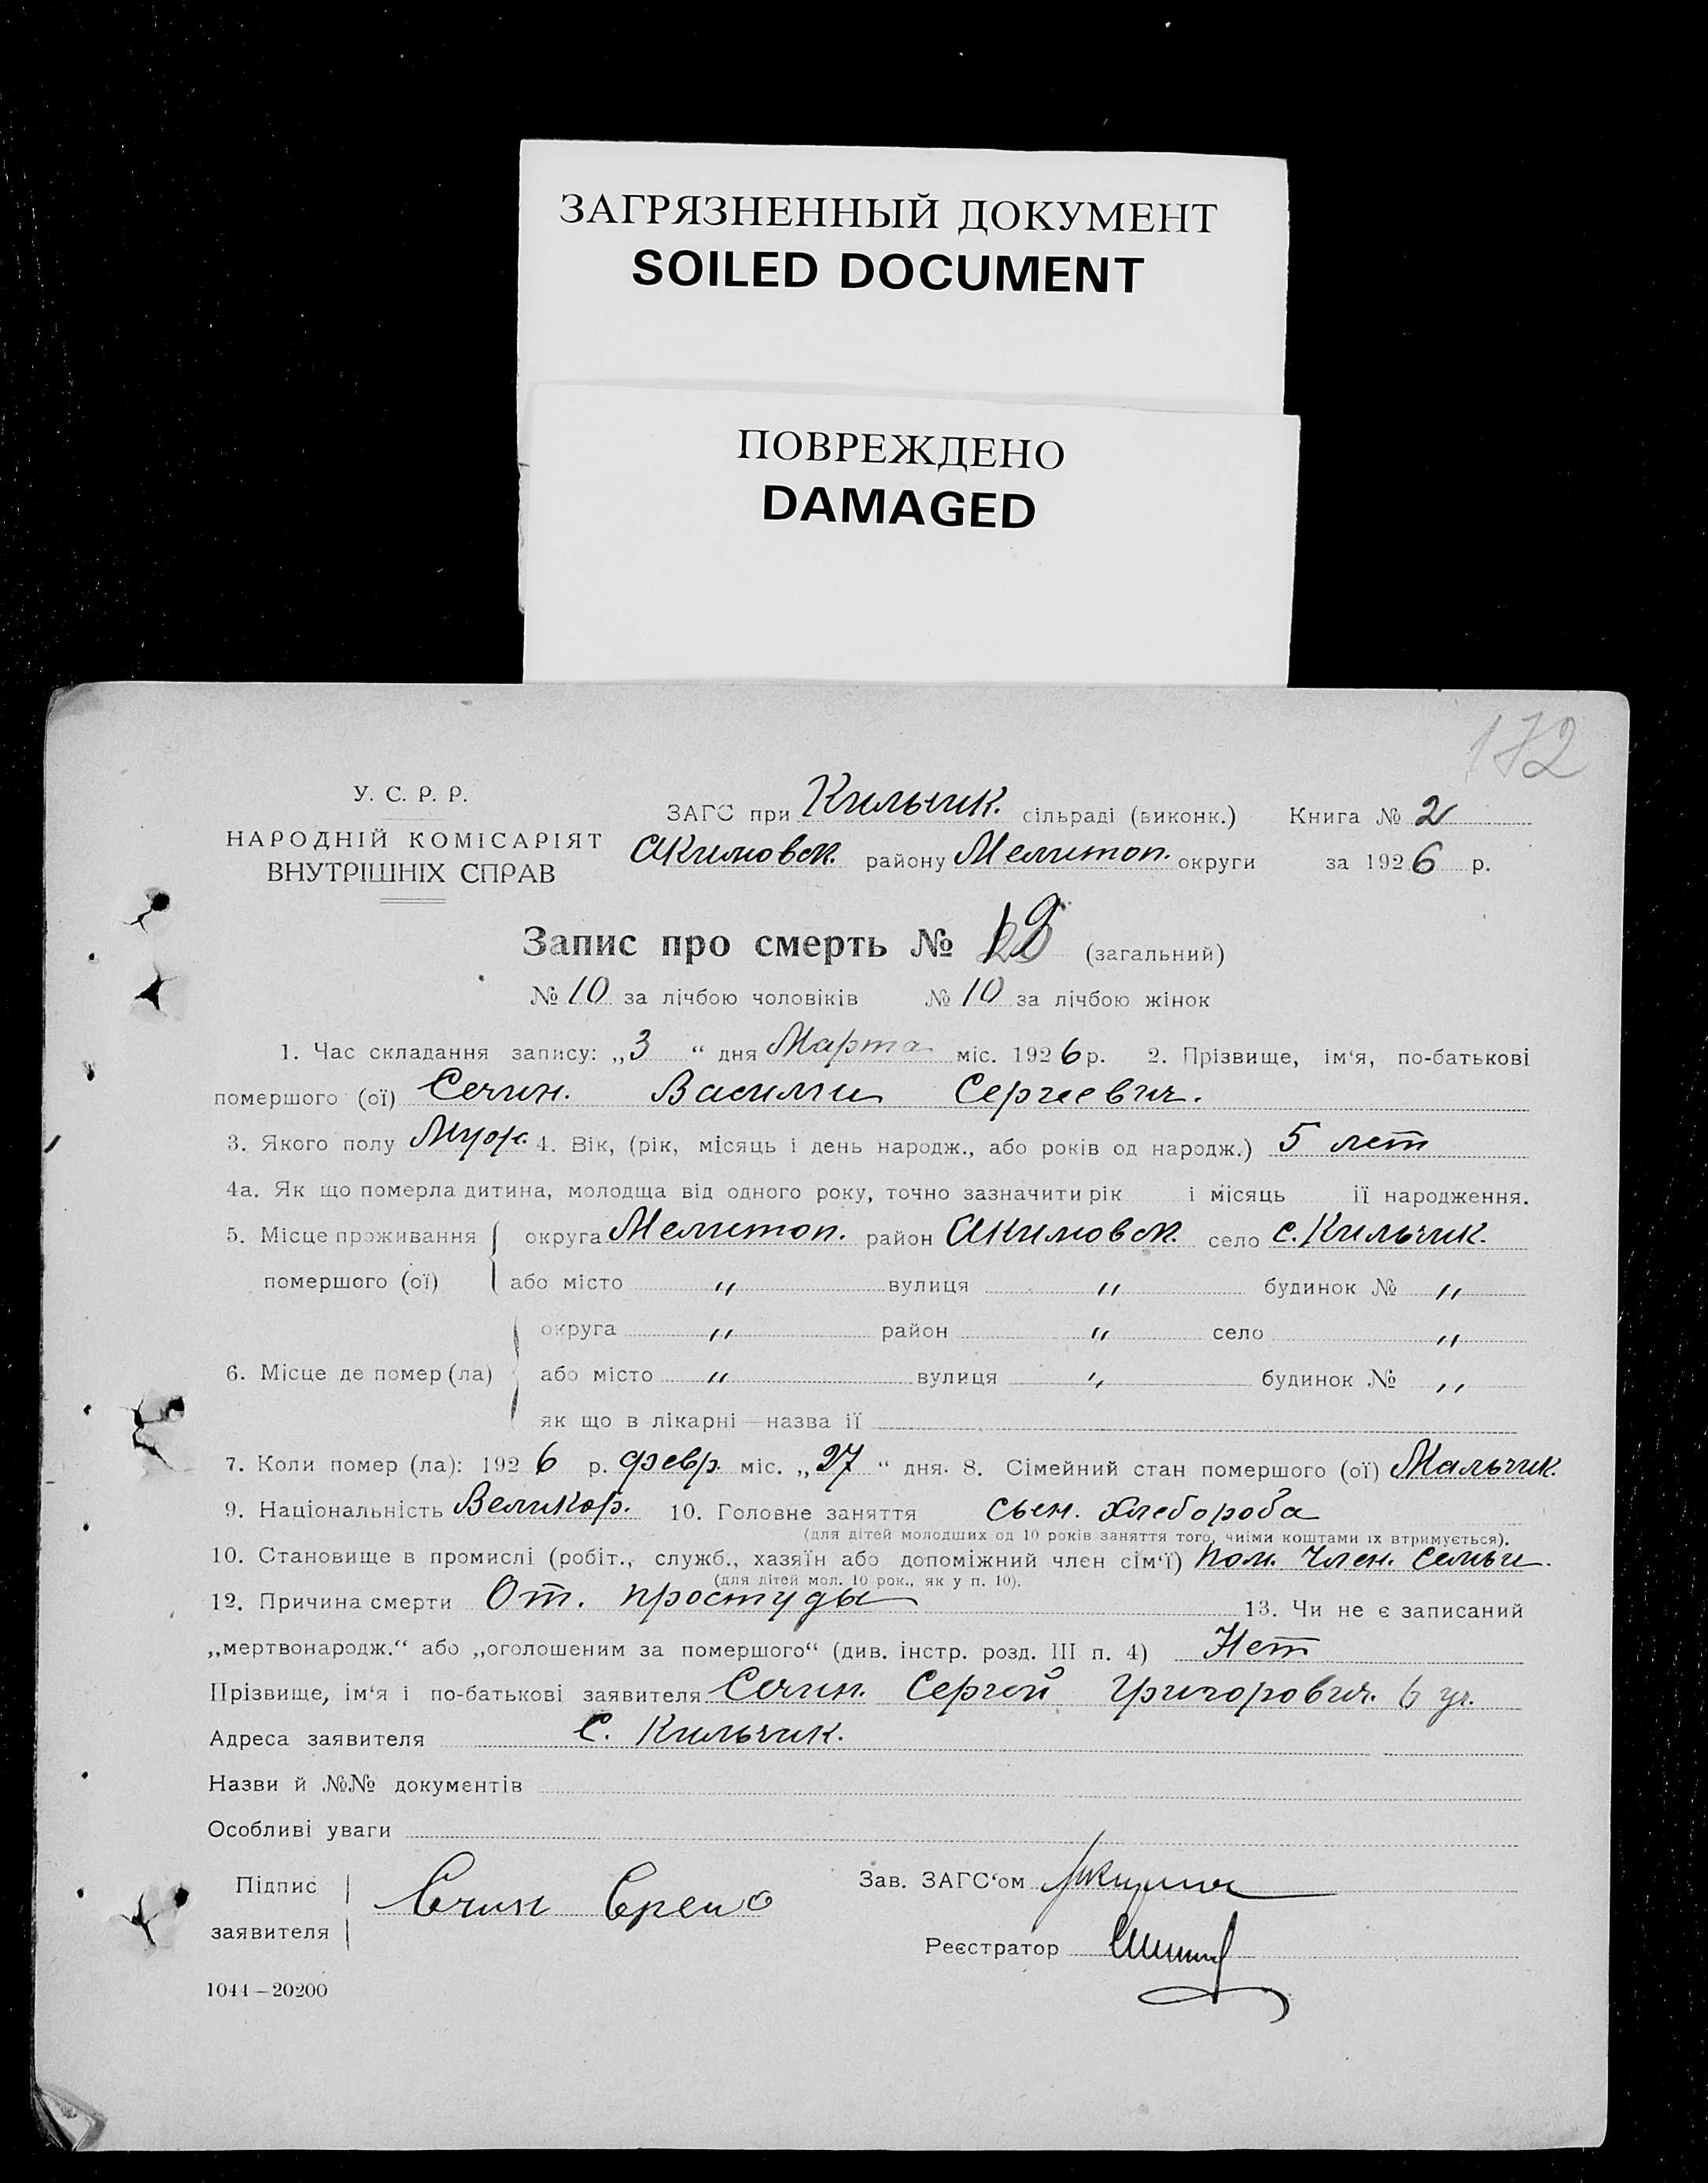 ЗАГРЯЗНЕННЫЙ ДОКУМЕНТ
SOILED DOCUMENT
ПОВРЕЖДЕНО
DAMAGED
172
У. С. Р. Р.
НАРОДНІЙ КОМІСАРІЯТ
ВНУТРІШНІХ СПРАВ
ЗАГС при Кильчик. сільраді (виконк.) Книга № 2
Акимовск. району Мелитоп. округи за 1926 р.
Запис про смерть № (загальний)
№ 10 за лічбою чоловіків № 10 за лічбою жінок
1. Час складання запису: „3“ дня Марта міс. 1926 р. 2. Прізвище, ім‘я, по-батькові
помершого (ої) Сечин. Василии Сергиевич.
3. Якого полу Муж. 4. Вік, (рік, місяць і день народж., або років од народж.) 5 лет
4а. Як що померла дитина, молодща від одного року, точно зазначити рік і місяць її народження.
5. Місце проживання округа Мелитоп. район Акимовск. село с. Кильчик.
помершого (ої) або місто „ вулиця „ будинок № „
округа „ район „ село „
6. Місце де помер (ла) або місто „ вулиця „ будинок № „
як що в лікарні—назва її
7. Коли помер (ла): 1926 р. февр. міс. „27“ дня. 8. Сімейний стан помершого (ої) Мальчик.
9. Національність Великор. 10. Головне заняття сын. хлебороба
(для дітей молодших од 10 років заняття того, чиїми коштами їх втримується).
10. Становище в промислі (робіт., служб., хазяїн або допоміжний член сім‘ї) пом. член. семьи.
(для дітей мол. 10 рок., як у п. 10).
12. Причина смерти От. простуды 13. Чи не є записаний
„мертвонародж.“ або „оголошеним за помершого“ (див. інстр. розд. III п. 4) Нет
Прізвище, ім‘я і по-батькові заявителя Сечин. Сергей Григорович.
Адреса заявителя С. Кильчик.
Назви й №№ документів
Особливі уваги
Підпис
заявителя
Зав. ЗАГС‘ом
Реєстратор
1044—20200